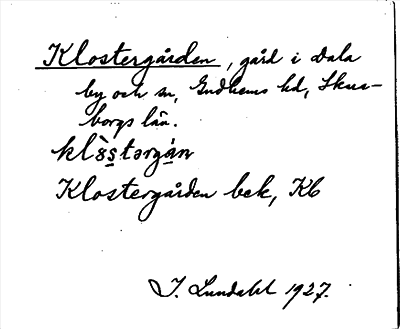 Klostergården, gård i Dala
by och sn, Gudhems hd, Skara-
borgs län.
klòstərgán
Klostergården bek, Kb
I. Lundahl 1927.